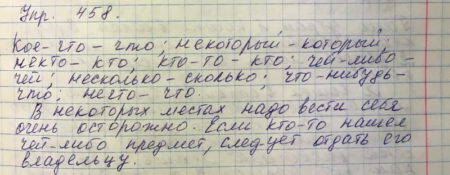 Упр. 458.
Кое-что - что; некоторый - который;
некто - кто; кто-то - кто; чей-либо -
чей; несколько - сколько; что-нибудь -
что; нечто - что.
В некоторых местах надо вести себя
очень осторожно. Если кто-то нашел
чей-либо предмет, следует отдать его
владельцу.